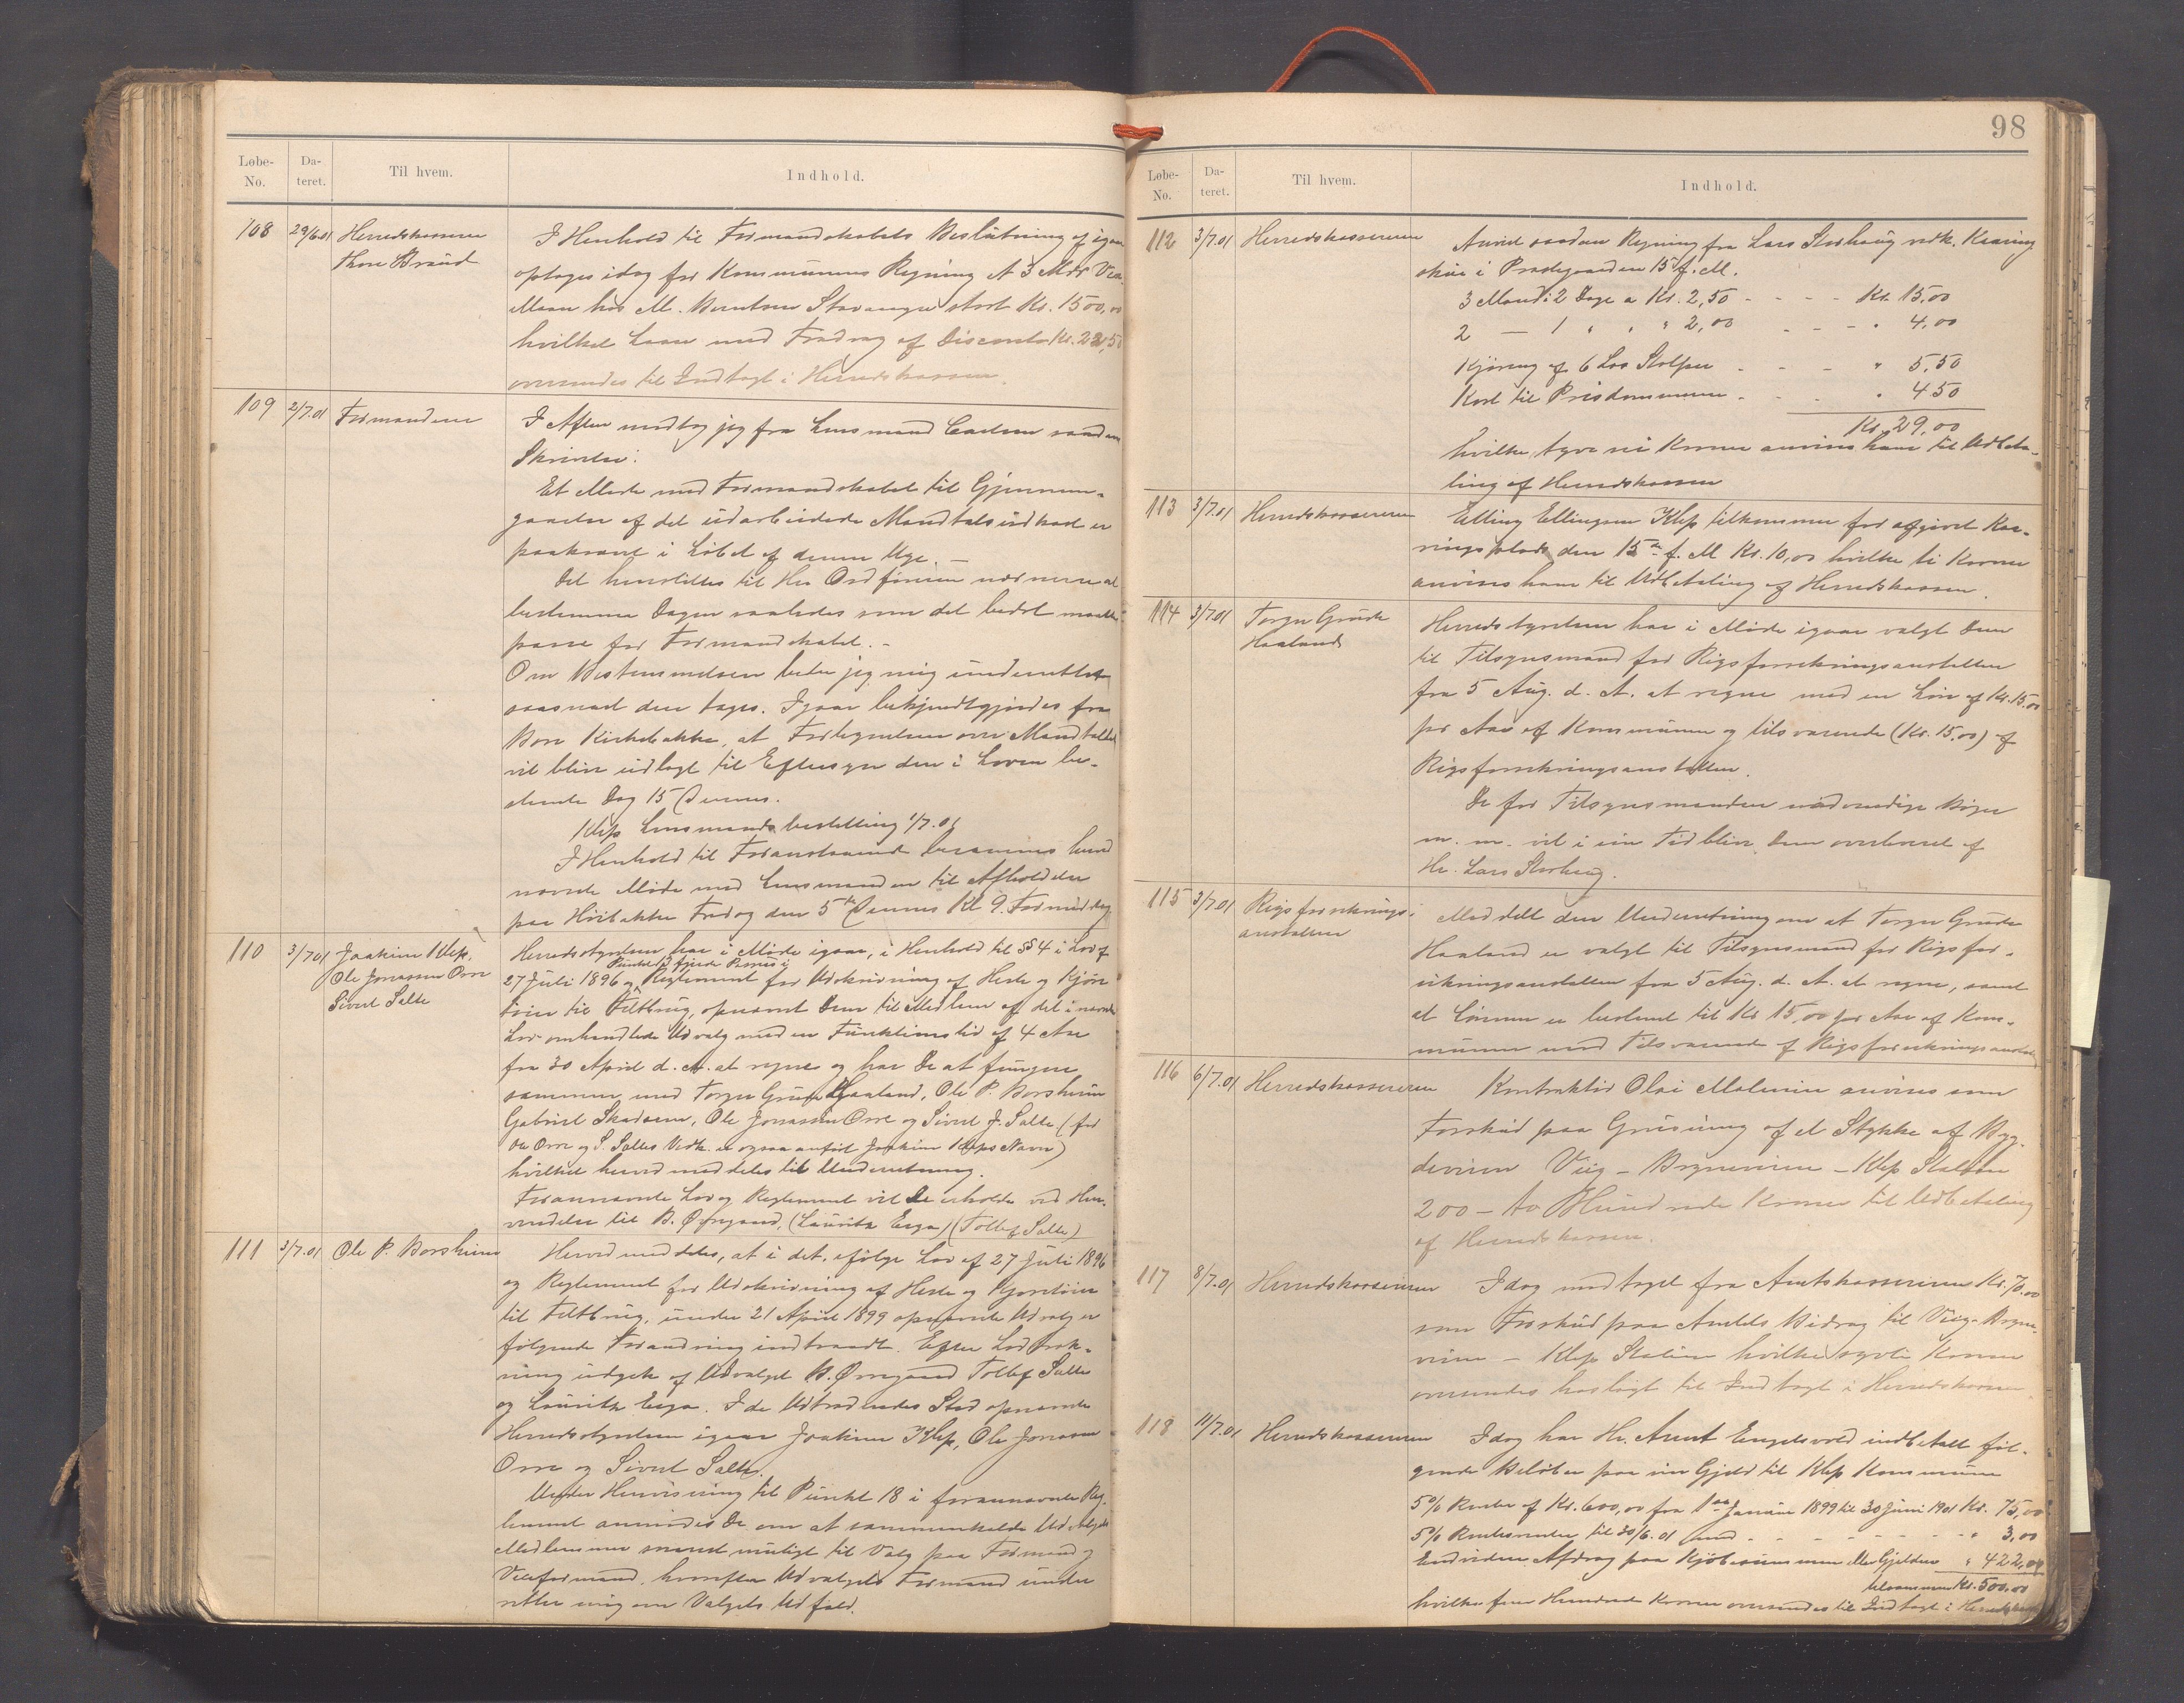 Løbe-No. Dateret. Til hvem. Indhold.
108 29/6.01 Herredskasserer Thore Braud
I Henhold til Formandskabets Beslutning af igaar
optages idag for Kommunens Regning et 3 Mdr Vexel-
laan hos M. Berntsen Stavanger stort Kr. 1500,00
hvilket Laan med Fradrag af Disconto Kr. 22,50
oversendes til Indtægt i Herredskassen.
109 2/7.01 Formændene
I Aften modtog jeg fra Lensmand Carlsen saadan
Skrivelse:
Et Møde med Formandskabet til Gjennem-
gaaelse af det udarbeidede Mandtalsudkast er
paakrævet i Løbet af denne Uge. —
Det henstilles til Hr. Ordføreren nærmere at
bestemme Dagen saaledes som det bedst maatte
passe for Formandskabet. -
Om Bestemmelsen beder jeg mig underrettet
saasnart den tages. Igaar bekjendtgjordes fra
Bore Kirkebakke, at Fortegnelsen over Mandtallet
vil blive udlagt til Eftersyn den i Loven be-
stemte Dag 15 dennes.
Klep Lensmandsbestilling 1/7.01
I Henhold til Foranstaaende berammes herved
nævnte Møde med Lensmanden til Afholdelse
paa Hvitakke Fredag den 5te dennes Kl 9. Formiddag
110 3/7.01 Joakim Klep. Ole Jonassen Orre Sivert Salte
Herredsstyrelsen har i Møde igaar, i Henhold til §§ 4 i Lov af
Punkt 3 fjerde Passus i
27 Juli 1896 og Reglement for Udskrivning af Heste og Kjøre-
tøier til Feltbrug, opnævnt Dem til Medlem af det i nævnte
Lov omhandlede Udvalg med en Funktionstid af 4 Aar
fra 30 April d. A. at regne og har De at fungere
sammen med Torger Grude Haaland, Ole P. Borsheim
Gabriel Skadsem, Ole Jonassen Orre og Sivert J. Salte (for
Ole Orre og S. Saltes Vedk. er ogsaa anført Joakim Kleps Navn)
hvilket herved meddeles til Underretning.
Forannævnte Lov og Reglement vil De erholde ved Hen-
vendelse til B. Øvregaard, (Lauritz Erga) (Tollef Salte)
111 3/7.01 Ole P. Borsheim
Herved meddeles, at i det, ifølge Lov af 27 Juli 1896
og Reglement for Udskrivning af Heste og Kjøretøier
til Feltbrug, under 21 April 1899 opnævnte Udvalg er
følgende Forandring indtraadt. Efter Lodtræk-
ning udgik af Udvalget B. Øvregaard Tollef Salte
og Lauritz Erga. I de Udtrædendes Sted opnævnte
Herredsstyrelsen igaar Joakim Klep, Ole Jonassen
Orre og Sivert Salte.
Under Henvisning til Punkt 18 i forannævnte Reg-
lement anmodes De om at sammenkalde Udvalgets
Medlemmer snarest muligt til Valg paa Formand og
Viceformand, hvorefter Udvalgets Formand under-
retter mig om Valgets Udfald.
98
Løbe-No. Dateret. Til hvem. Indhold.
112 3/7.01 Herredskassereren
Anvist saadan Regning fra Lars Storhaug vedk. Kaaring
skue i Prestegaarden 15 f. M.
3 Mand i 2 Dage a Kr. 2,50 - - - - Kr. 15,00
2 — 1 " " " 2,00 - - - " 4,00
Kjøring af 6 Læs Stolper - - - " 5,50
Kost til Prisdommerne - - - " 4 50
Kr. 29,00
hvilke tyve ni Kroner anvises ham til Udbeta-
ling af Herredskassen
113 3/7.01 Herredskassereren
Elling Ellingsen Klep tilkommer for afgivet Kaa-
ringsplads den 15de f. M Kr. 10,00 hvilke ti Kroner
anvises ham til Udbetaling af Herredskassen.
114 3/7.01 Torger Grude Haaland
Herredsstyrelsen har i Møde igaar valgt Dem
til Tilsynsmand for Rigsforsikringsanstalten
fra 5 Aug. d. A. at regne med en Løn af Kr. 15.00
pr Aar af Kommunen og tilsvarende (Kr. 15.00) af
Rigsforsikringsanstalten.
De for Tilsynsmanden nødvendige Bøger
m. m. vil i sin Tid blive Dem overleveret af
Hr. Lars Storhaug.
115 3/7.01 Rigsforsikrings-anstalten
Meddelt den Underretning om at Torger Grude
Haaland er valgt til Tilsynsmand for Rigsfor-
sikringsanstalten fra 5 Aug. d. A. at regne, samt
at Lønnen er bestemt til Kr 15,00 pr Aar af Kom-
munen med Tilsvarende af Rigsforsikringsanstalten
116 6/7.01 Herredskassereren
Kontraktør Olai Malmin anvises som
Forskud paa Grusning af et Stykke af Byg-
deveien Viig - Bryneveien - Klep Station
200 — to Hundrede Kroner til Udbetaling
af Herredskassen.
117 8/7.01 Herredskassereren
Idag modtaget fra Amtskassereren Kr. 70.00
som Forskud paa Amtets Bidrag til Viig-Bryne-
veien - Klep Station hvilke sytti Kroner
oversendes hoslagt til Indtægt i Herredskassen.
118 11/7.01 Herredskassereren
Idag har Hr. Arent Engelsvold indbetalt føl-
gende Beløber paa sin Gjeld til Klep Kommune
5% Renter af Kr. 600,00 fra 1ste Januar 1899 til 30 Juni 1901 Kr. 75,00
5% Rentesrenter til 30/6.01 med - - - - - - - " 3,00
Endvidere Afdrag paa Kjøbesummen eller Gjelden " 422,00
tilsammen Kr. 500.00
hvilke fem Hundrede Kroner oversendes til Indtægt i Herredskassen